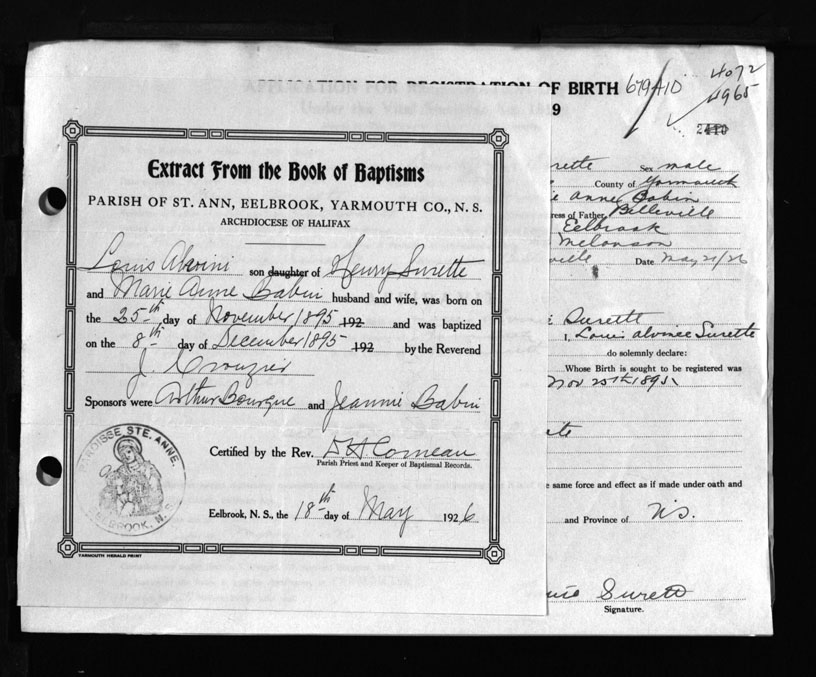 APPLICATION FOR REGISTRATION OF BIRTH 679410
4072
4965
Under the Vital
9
2410
Extract From the Book of Baptisms
PARISH OF ST. ANN, EELBROOK, YARMOUTH CO., N. S.
ARCHDIOCESE OF HALIFAX
Louis son daughter of Henry Surette
and Marie Anne Babin husband and wife, was born on
the 25th day of November 1895 192 and was baptized
on the 8th day of December 1895 192 by the Reverend
J Crouzier
Sponsors were Arthur Bourque and Jeannie Babin
Certified by the Rev. Comeau
Parish Priest and Keeper of Baptismal Records.
Eelbrook, N. S., the 18th day of May 1926
YARMOUTH HERALD PRINT
PAROISSE STE. ANNE.
EELBROOK, N.S.
rette Sex male
County of Yarmouth
ie Anne Babin
ress of Father Belleville
Eelbrook
Melanson
ville Date May 21/26
Surette
I, Louis Alvinee Surette
do solemnly declare:
Whose Birth is sought to be registered was
Nov 25th 1895
ate
e same force and effect as if made under oath and
and Province of N.S.
uis Surett
Signature.